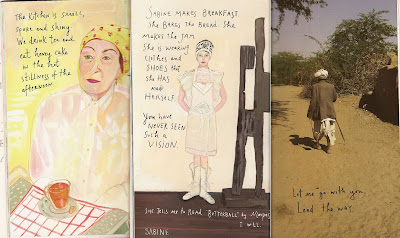 The KitcHen is SMALL,
spare and shiny.
We drink tea and
eat honey cake
in the hot
stillness of the
afternoon.
SABINE MAKES BREAKFAST
SHe BAKES The BReaD. SHe
MAKES The JAM.
SHe is weARiNG
CLOTHES and
SHOES THAT
SHe HAS
MADE
HERSELF.
You have
NEVER SEEN
Such A
VISION.
SHe Tells me to Read "BUTTERBALL" by
I will.
SABINE
Let me go with you.
Lead the way.